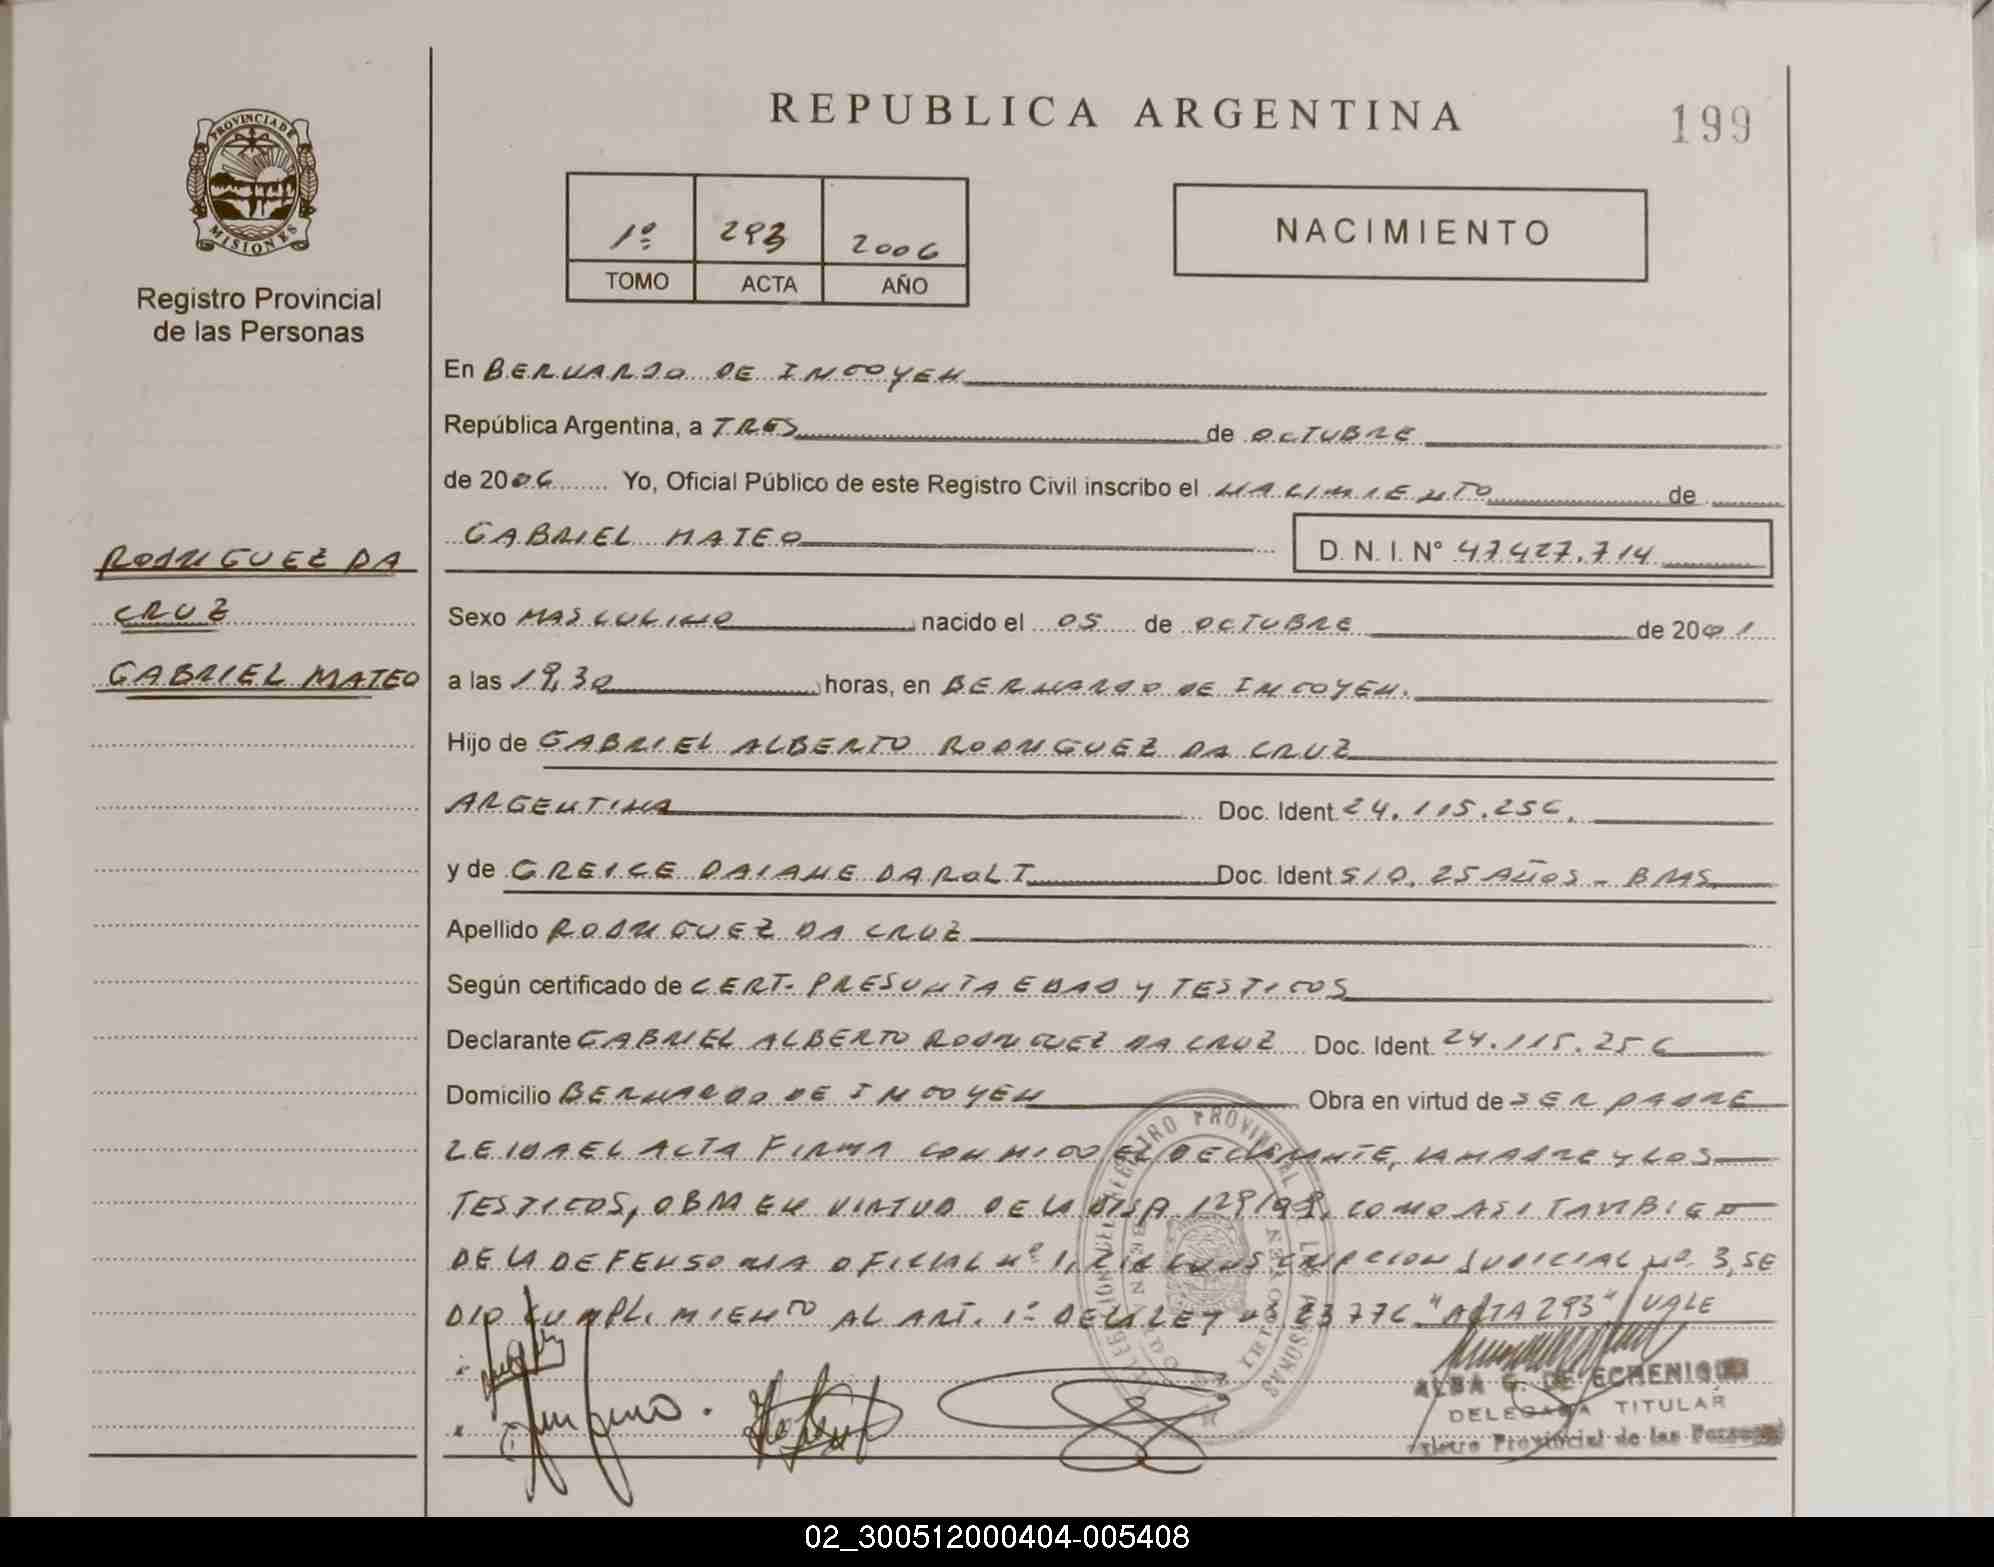 REPUBLICA ARGENTINA
199
PROVINCIA DE
MISIONES
Registro Provincial
de las Personas
1º 293 2006
TOMO ACTA AÑO
NACIMIENTO
En BERNARDO DE IRIGOYEN
República Argentina, a TRES de OCTUBRE
de 2006 Yo, Oficial Público de este Registro Civil inscribo el NACIMIENTO de
GABRIEL MATEO D. N. I. N° 47427.714
RODRIGUEZ DA
CRUZ
GABRIEL MATEO
Sexo MASCULINO nacido el 05 de OCTUBRE de 2001
a las 19,30 horas, en BERNARDO DE IRIGOYEN.
Hijo de GABRIEL ALBERTO RODRIGUEZ DA CRUZ
ARGENTINA Doc. Ident. 24.115.256.
y de GREICE DAIANE DAROLT Doc. Ident S/D. 25 AÑOS - BRAS
Apellido RODRIGUEZ DA CRUZ
Según certificado de CERT. PRESUNTA EDAD Y TESTIGOS
Declarante GABRIEL ALBERTO RODRIGUEZ DA CRUZ Doc. Ident. 24.115.256
Domicilio BERNARDO DE IRIGOYEN Obra en virtud de SER PADRE
LEIDA EL ACTA FIRMA CONMIGO EL DECLARANTE, LA MADRE Y LOS
TESTIGOS, OBRA EN VIRTUD DE LA DISP. 129/98, COMO ASI TAMBIEN
DE LA DEFENSORIA OFICIAL Nº 1, CIRCUNSCRIPCION JUDICIAL Nº 3, SE
DIO CUMPLIMIENTO AL ART. 1º DE LA LEY Nº 23776 "ACTA 293" VALE
ALBA G. DE ECHENIQUE
DELEGADA TITULAR
Registro Provincial de las Personas
02_300512000404-005408